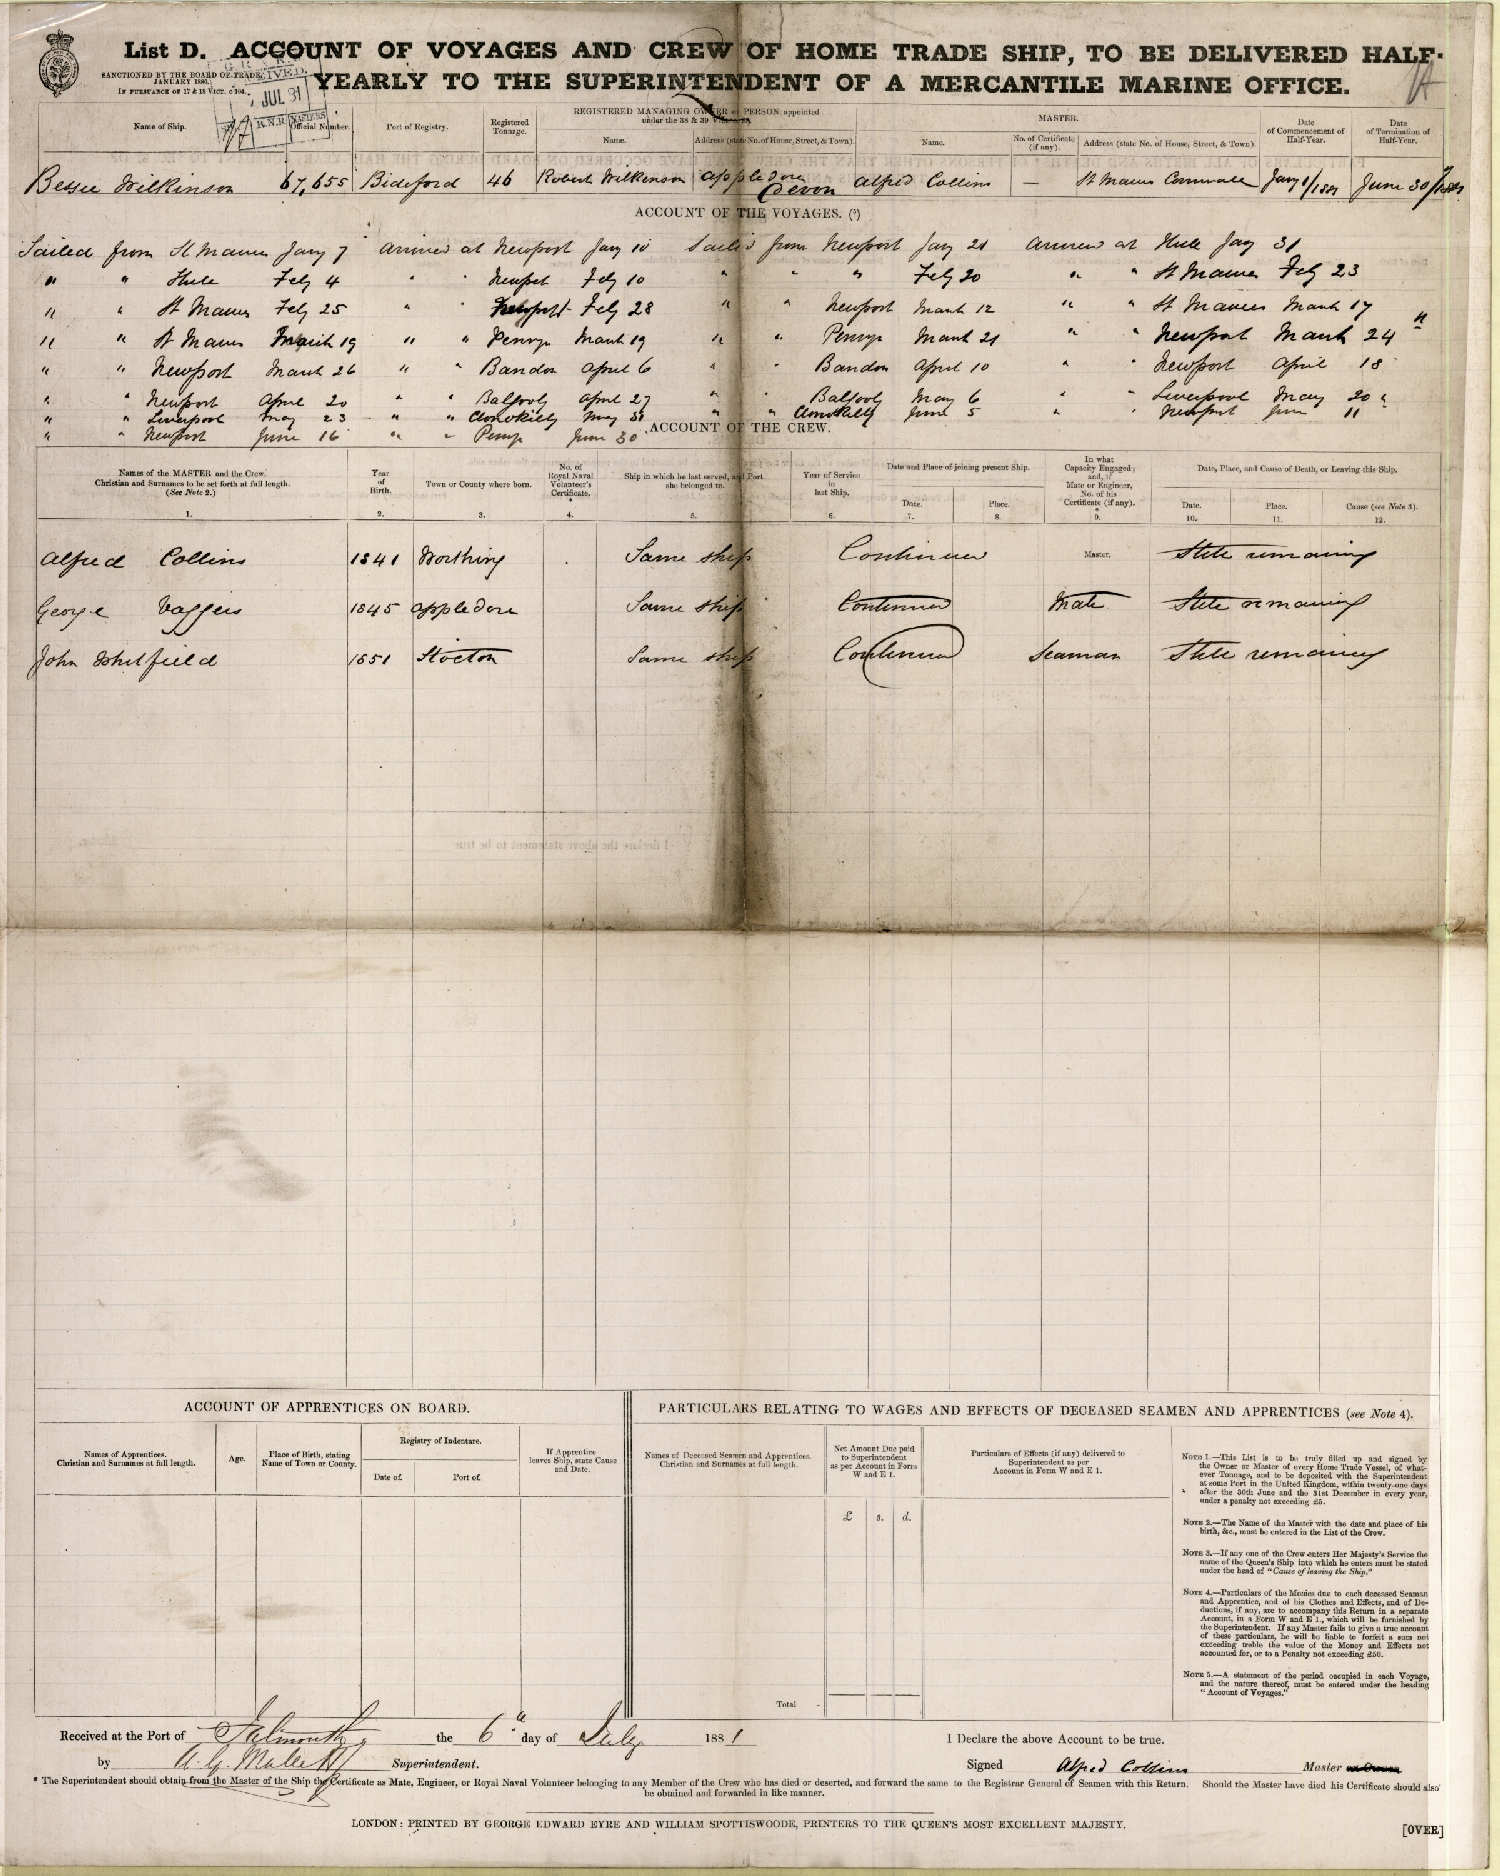 List D. ACCOUNT OF VOYAGES AND CREW OF HOME TRADE SHIP, TO BE DELIVERED HALF-
YEARLY TO THE SUPERINTENDENT OF A MERCANTILE MARINE OFFICE.
SANCTIONED BY THE BOARD OF TRADE,
JANUARY 1880.
IN PURSUANCE OF 17 & 18 VICT. c 104.
RECEIVED
JUL 81
R.N.R. MASTERS
Name of Ship. Official Number. Port of Registry. Registered Tonnage. REGISTERED MANAGING OWNER or PERSON appointed under the 38 & 39 Vict. Name. Address (state No. of House, Street, & Town). MASTER. Name. No. of Certificate (if any). Address (state No. of House, Street, & Town). Date of Commencement of Half-Year. Date of Termination of Half-Year.
Bessie Wilkinson 67,655 Bideford 46 Robert Wilkinson Appledore Devon Alfred Collins — St Mawes Cornwall Jany 1/1881 June 30/1881
ACCOUNT OF THE VOYAGES. (⁵)
Sailed from St Mawes Jany 7 arrived at Newport Jany 10 Sailed from Newport Jany 21 arrived at Hule Jay 31
" " Hule Feby 4 " " Newport Feby 10 " " " Feby 20 " " St Mawes Feby 23
" " St Mawes Feby 25 " " Newport Feby 28 " " Newport March 12 " " St Mawes March 17
" " St Mawes March 19 " " Penryn March 19 " " Penryn March 21 " " Newport March 24 "
" " Newport March 26 " " Bandon April 6 " " Bandon April 10 " " Newport April 18
" " Newport April 20 " " Balfooly April 27 " " Balfooly May 6 " " Liverpool May 20 "
" " Liverpool May 23 " " Clonokielly May 31 " " Clonokielly June 5 " " Newport June 11 "
" " Newport June 16 " " Penryn June 30
ACCOUNT OF THE CREW.
Names of the MASTER and the Crew. Christian and Surnames to be set forth at full length. (See Note 2.) Year of Birth. Town or County where born. No. of Royal Naval Volunteer's Certificate. * Ship in which he last served, and Port she belonged to. Year of Service in last Ship. Date and Place of joining present Ship. Date. Place. In what Capacity Engaged; and, if Mate or Engineer, No. of his Certificate (if any). * Date, Place, and Cause of Death, or Leaving this Ship. Date. Place. Cause (see Note 3).
1. 2. 3. 4. 5. 6. 7. 8. 9. 10. 11. 12.
Alfred Collins 1841 Worthing Same ship Continued Master. Still remaining
George Vaggers 1845 Appledore Same ship Continued Mate Still remaining
John Whitfield 1851 Stocton Same ship Continued Seaman Still remaining
ACCOUNT OF APPRENTICES ON BOARD.
Names of Apprentices. Christian and Surnames at full length. Age. Place of Birth, stating Name of Town or County. Registry of Indenture. Date of. Port of. If Apprentice leaves Ship, state Cause and Date.
PARTICULARS RELATING TO WAGES AND EFFECTS OF DECEASED SEAMEN AND APPRENTICES (see Note 4).
Names of Deceased Seamen and Apprentices. Christian and Surnames at full length. Net Amount Due paid to Superintendent as per Account in Form W and E 1. Particulars of Effects (if any) delivered to Superintendent as per Account in Form W and E 1.
£ s. d.
Total
NOTE 1.—This List is to be truly filled up and signed by
the Owner or Master of every Home Trade Vessel, of what-
ever Tonnage, and to be deposited with the Superintendent
at some Port in the United Kingdom, within twenty-one days
after the 30th June and the 31st December in every year,
under a penalty not exceeding £5.
NOTE 2.—The Name of the Master with the date and place of his
birth, &c., must be entered in the List of the Crew.
NOTE 3.—If any one of the Crew enters Her Majesty's Service the
name of the Queen's Ship into which he enters must be stated
under the head of "Cause of leaving the Ship."
NOTE 4.—Particulars of the Monies due to each deceased Seaman
and Apprentice, and of his Clothes and Effects, and of De-
ductions, if any, are to accompany this Return in a separate
Account, in a Form W and E 1., which will be furnished by
the Superintendent. If any Master fails to give a true account
of these particulars, he will be liable to forfeit a sum not
exceeding treble the value of the Money and Effects not
accounted for, or to a Penalty not exceeding £50.
NOTE 5.—A statement of the period occupied in each Voyage,
and the nature thereof, must be entered under the heading
"Account of Voyages."
Received at the Port of Falmouth the 6th day of July 1881 I Declare the above Account to be true.
by Superintendent. Signed Alfred Collins Master or Owner
* The Superintendent should obtain from the Master of the Ship the Certificate as Mate, Engineer, or Royal Naval Volunteer belonging to any Member of the Crew who has died or deserted, and forward the same to the Registrar General of Seamen with this Return. Should the Master have died his Certificate should also
be obtained and forwarded in like manner.
LONDON: PRINTED BY GEORGE EDWARD EYRE AND WILLIAM SPOTTISWOODE, PRINTERS TO THE QUEEN'S MOST EXCELLENT MAJESTY.
[OVER]